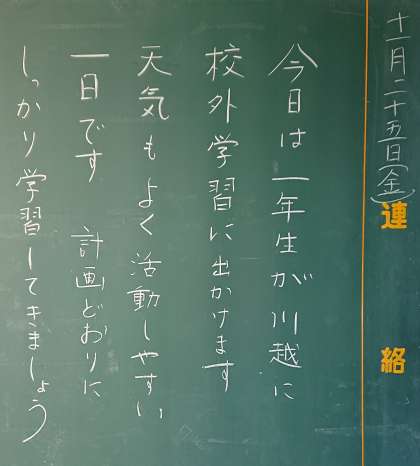 十一月二十五日(金)
連絡
今日は一年生が川越に
校外学習に出かけます
天気もよく活動しやすい
一日です 計画どおりに
しっかり学習してきましょう